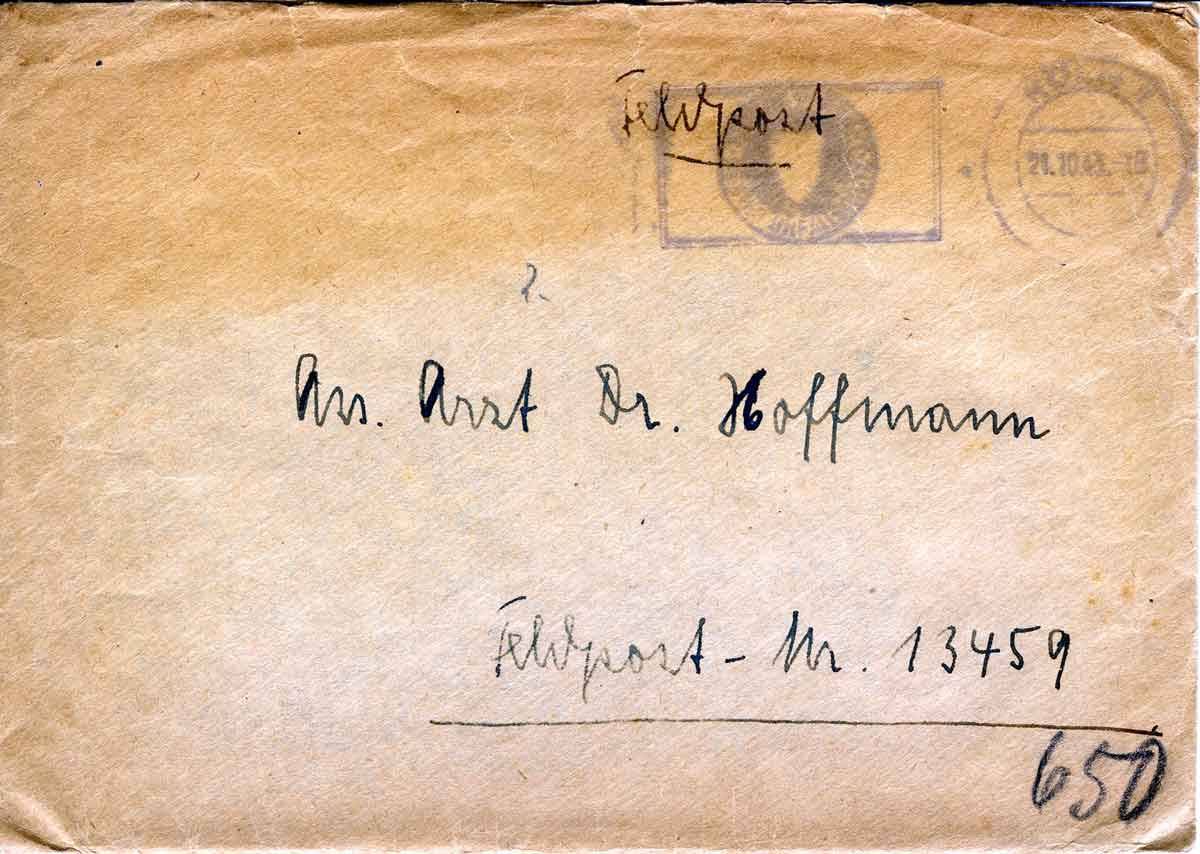 Feldpost
21.10.43.
2.
Ass. Arzt Dr. Hoffmann
Feldpost - Nr. 13459
650